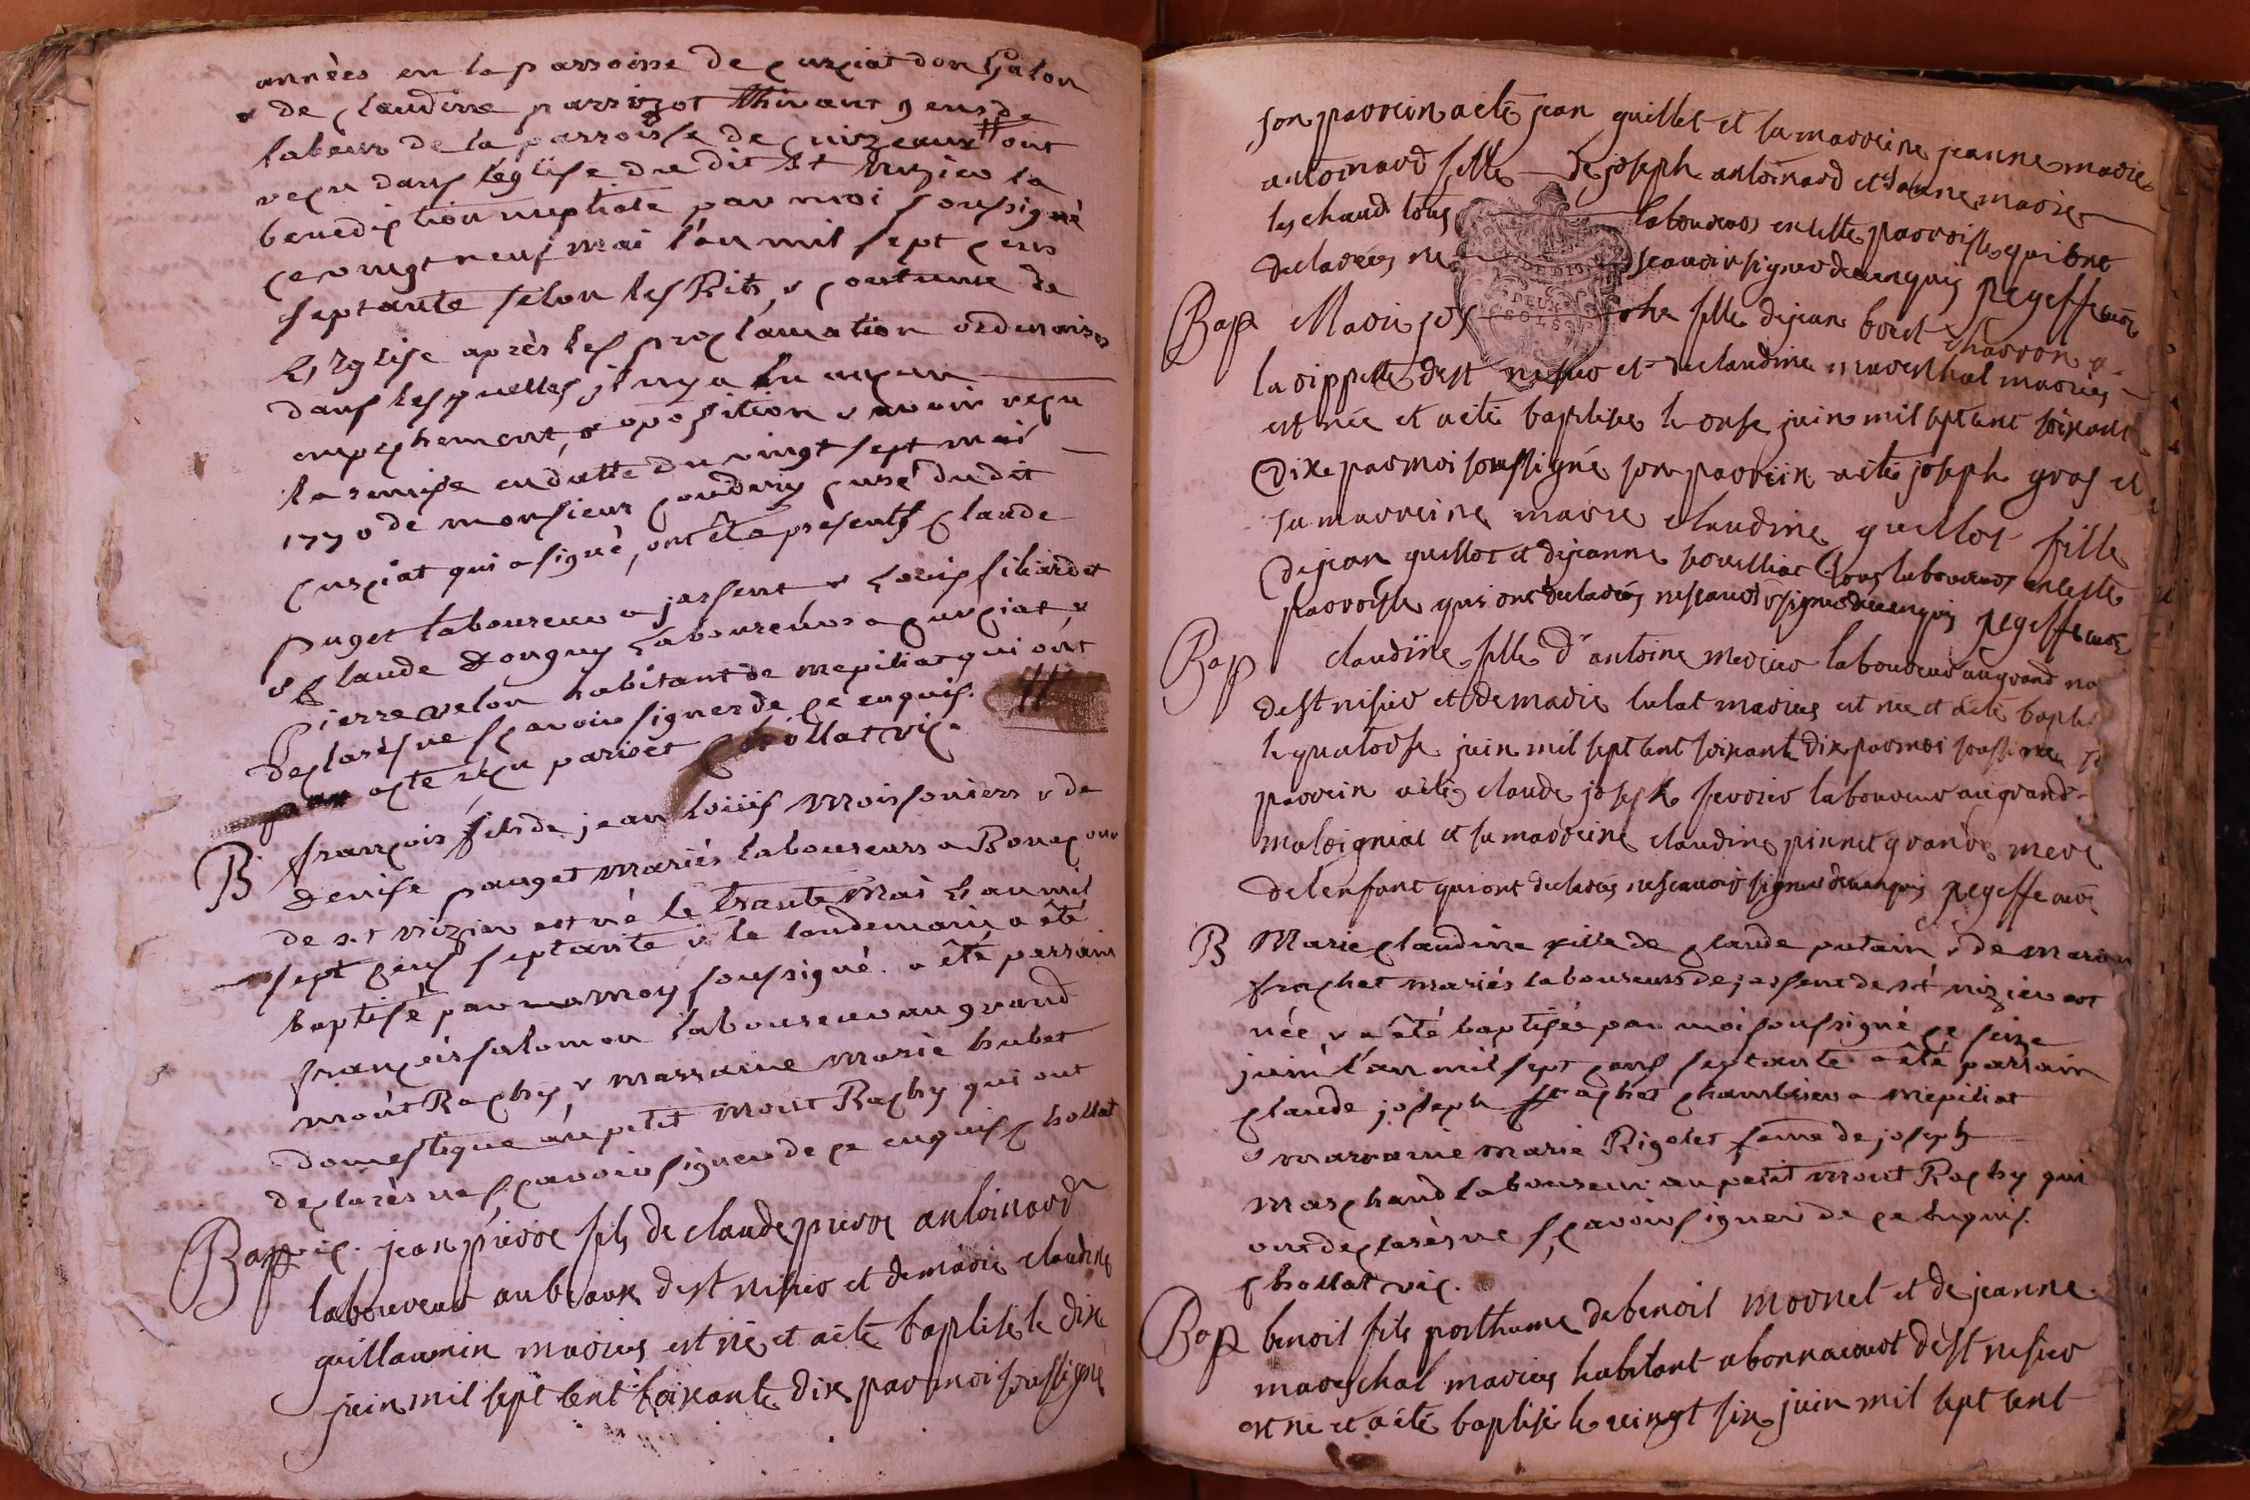 années en la parroisse de curciat dongalon
& de claudine parrizot thivant gens de
labeur de la parroisse de cuizeaux # ont
reçu dans léglise du dit st nizier la
benediction nuptiale par moi soussigné
ce vingt neuf mai l'an mil sept cens
septante selon les Rits, & coutume de
l'Eglise après les proclamation ordinaires
dans lesquelles il n'y a eu aucun
empechement, & oposition & avoir reçu
la remise en datte du vingt sept mai
1770 de monsieur curé du dit
curciat qui a signé, ont été presents claude
puget laboureur a jassent & Louis filiardet
& claude laboureur a curciat &
Pierre velon habitant de mepiliat qui ont
declarés ne scavoir signer de ce enquis. #
acte reçu parizet chollat vic.
B françois fils de jean loüis moissoniers & de
denise pauget mariés laboureurs a Bonacour
de st nizier est né le trante mai l'an mil
sept cens septante & le landemain a été
baptisé par moy soussigné. a été parrain
françois salomon laboureur au grand
mont Rachy, & marraine marie hubet
domestique au petit mont Rachy qui ont
declarés ne scavoir signer de ce enquis chollat
vic.
Bap jean pierre fils de claude pierre antoinard
laboureur au biaux de st nisier et de marie claudine
guillaumin mariés est né et a été baptisé le dix
juin mil sept cent soixante dix par moi soussigné
son parrein a été jean guillet et sa marreine jeanne marie
antoinard fille de joseph antoinard et d'anne marie
leschaud tous laboureurs en cette parroisse qui ont
declarés ne scavoir signer de ce enquis pegeffe curé
Bap Marie jos phe fille de jean boest charron a
la dippette de st nisier et de claudine mareschal mariés
est née et a été baptisée le onse juin mil sept cent soixante
dix par moi soussigné son parrein a été joseph gros et
sa marreine marie claudine guillot fille
de jean guillot et de jeanne tous laboureurs en cette
parroisse qui ont declarés ne scavoir signer de ce enquis pegeffe curé
Bap claudine fille d'antoine mercier laboureur au grand
de st nisier et de marie lulat mariés est née et a été baptisée
le quatorse juin mil sept cent soixante dix par moi soussigné
parrein a été claude joseph ferrier laboureur au grand
maloigniat et sa marreine claudine pinnet grande mere
de l'enfant qui ont declarés ne scavoir signer de ce enquis pegeffe curé
B Marie claudine fille de claude putain & de marie
frachet mariés laboureurs de jassent de st nizier est
née & a été baptisée par moi soussigné ce seize
juin l'an mil sept cens septante a été parrain
claude joseph frachet a mepiliat
& marraine marie Rigolet feme de joseph
marchand laboureur au petit mont Rachy qui
ont declarés ne scavoir signer de ce enquis.
chollat vic.
Bap benoit fils posthume de benoit mornet et de jeanne
mareschal mariés habitant a bonnacourt de st nisier
est né et a été baptisé le vingt six juin mil sept cent